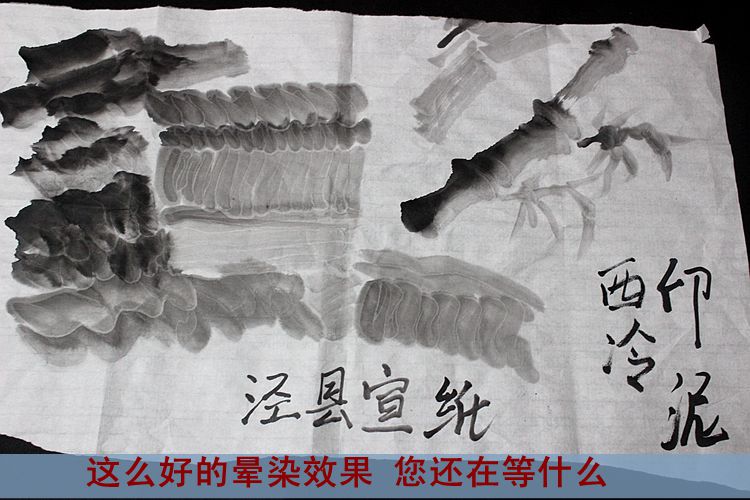 泾县宣纸
印泥
西冷
这么好的晕染效果 您还在等什么